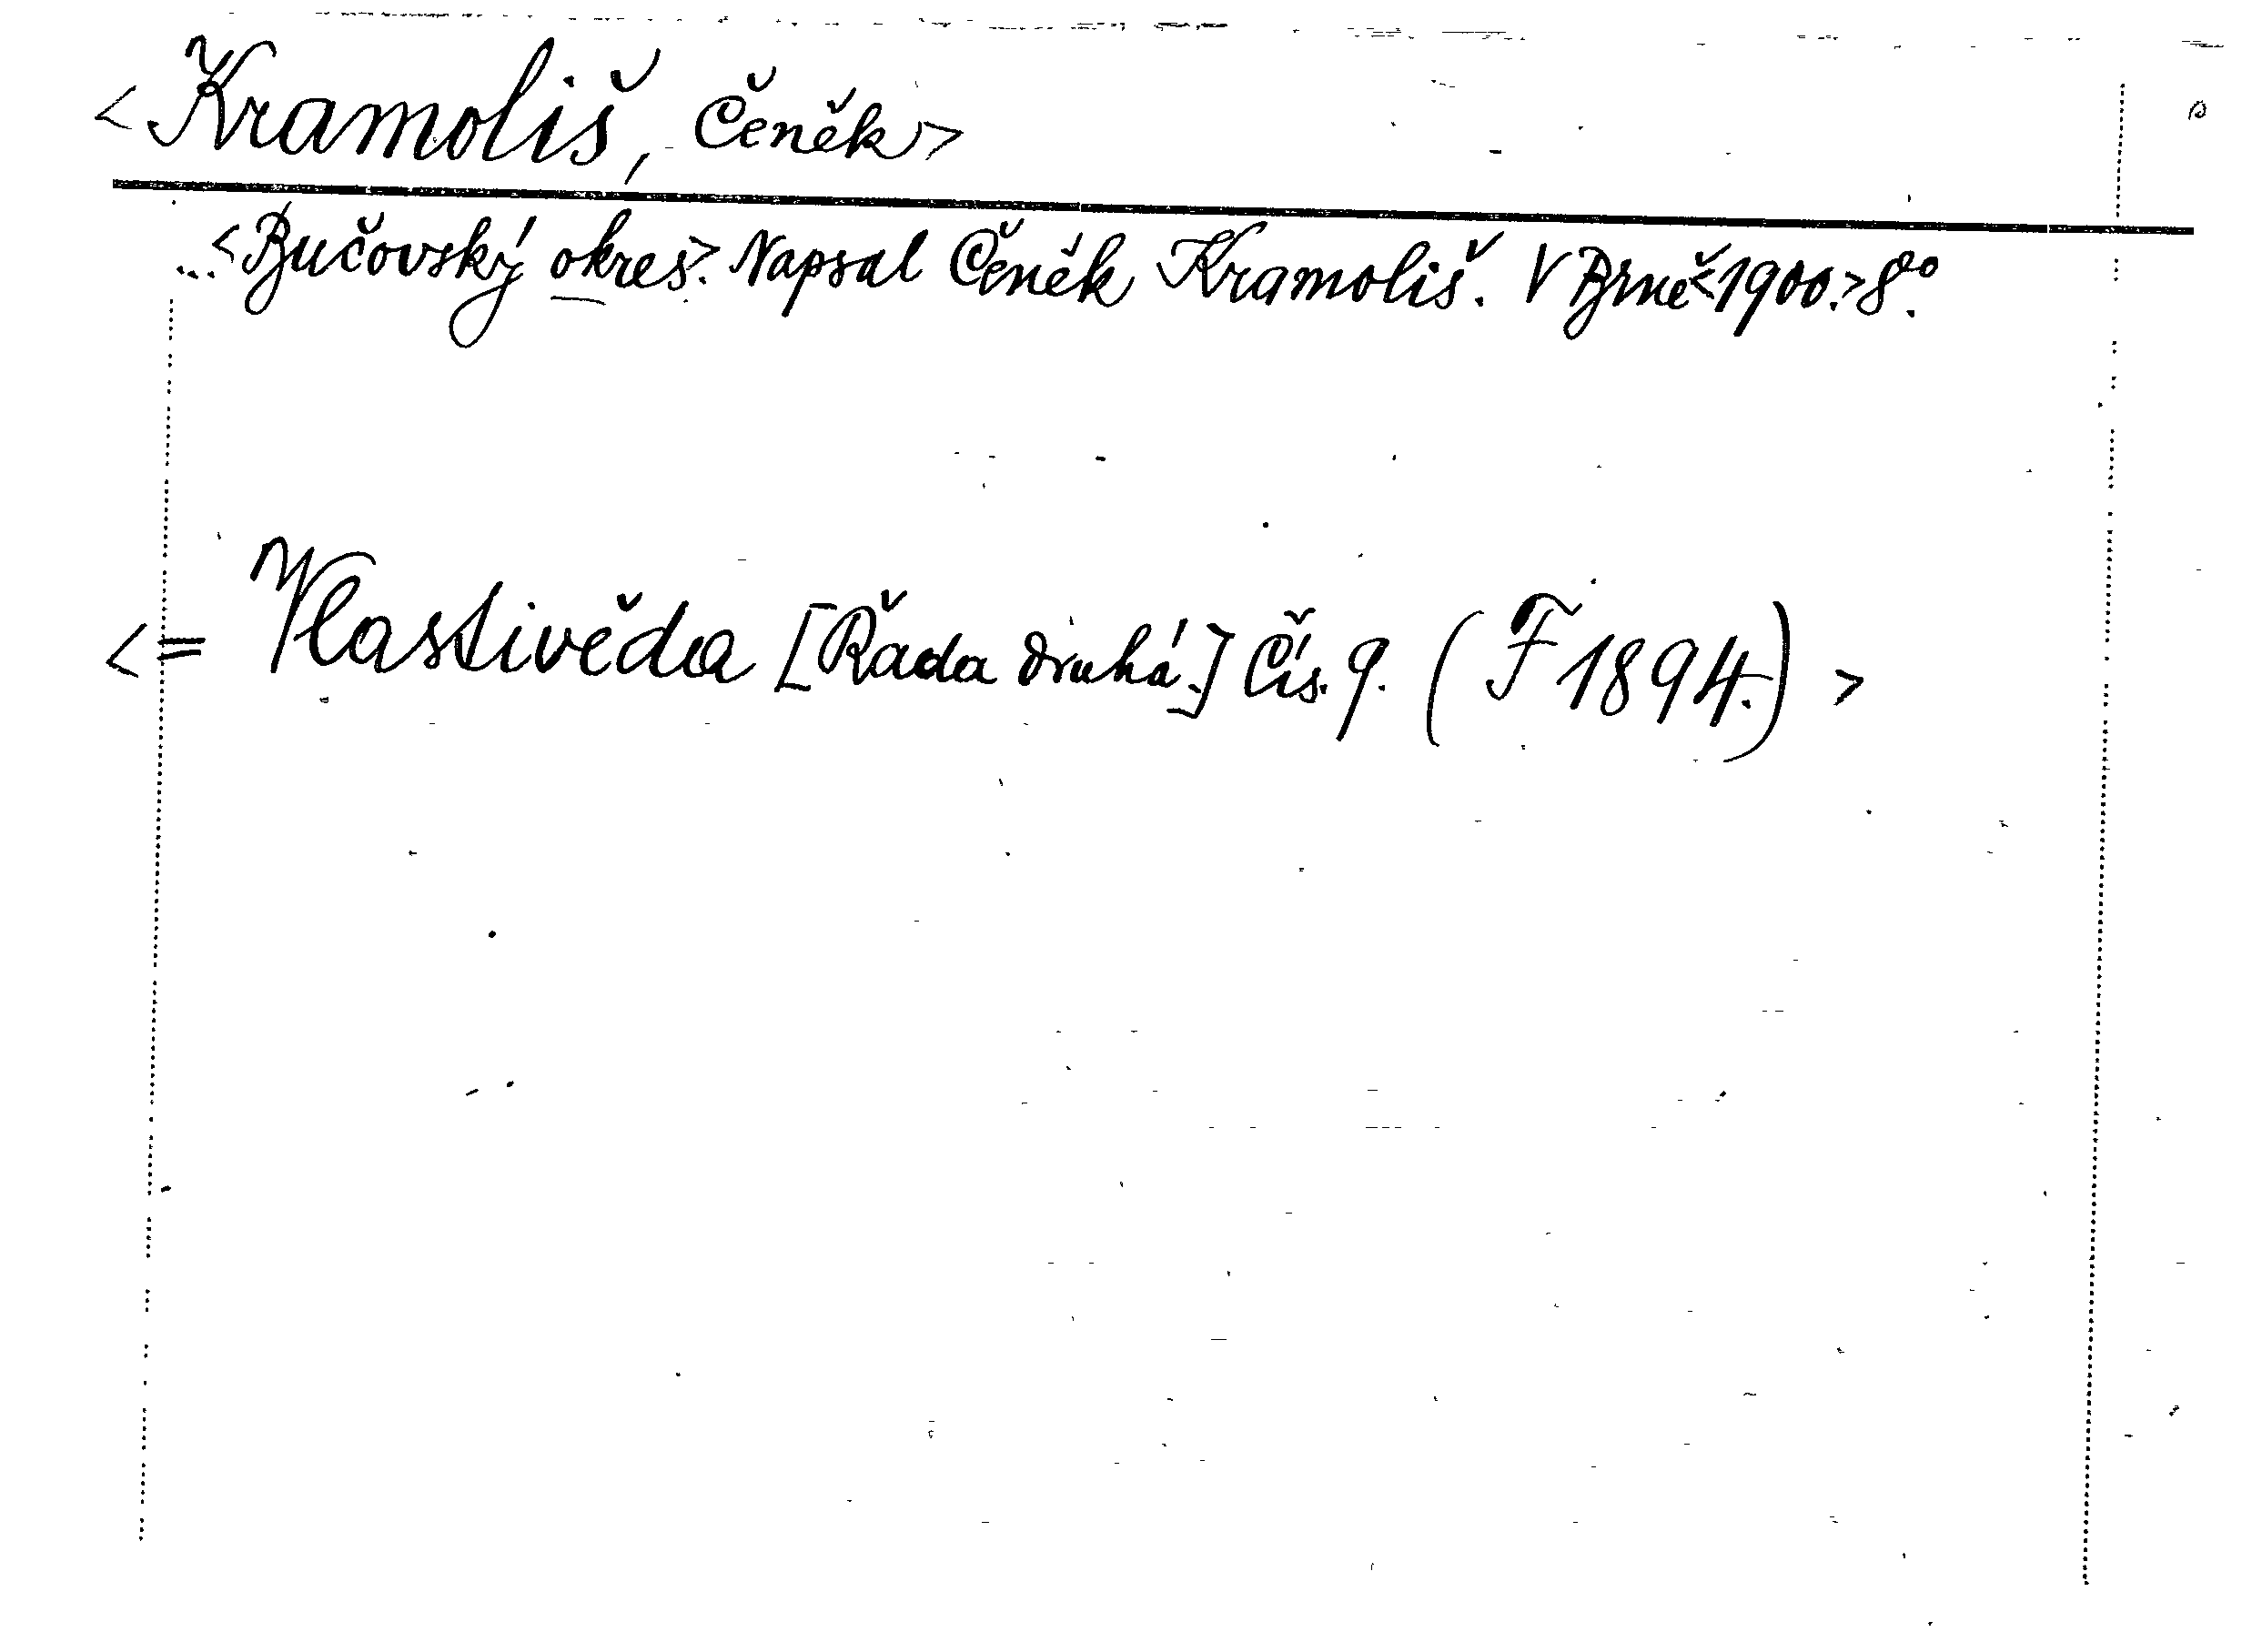 <Kramoliš, Čeněk>
...<Bučovský okres>. Napsal Čeněk Kramoliš. V Brně <1900.> 8°.
<= Vlastivěda [Řada druhá.] Čís. 9. (F 1894.) >